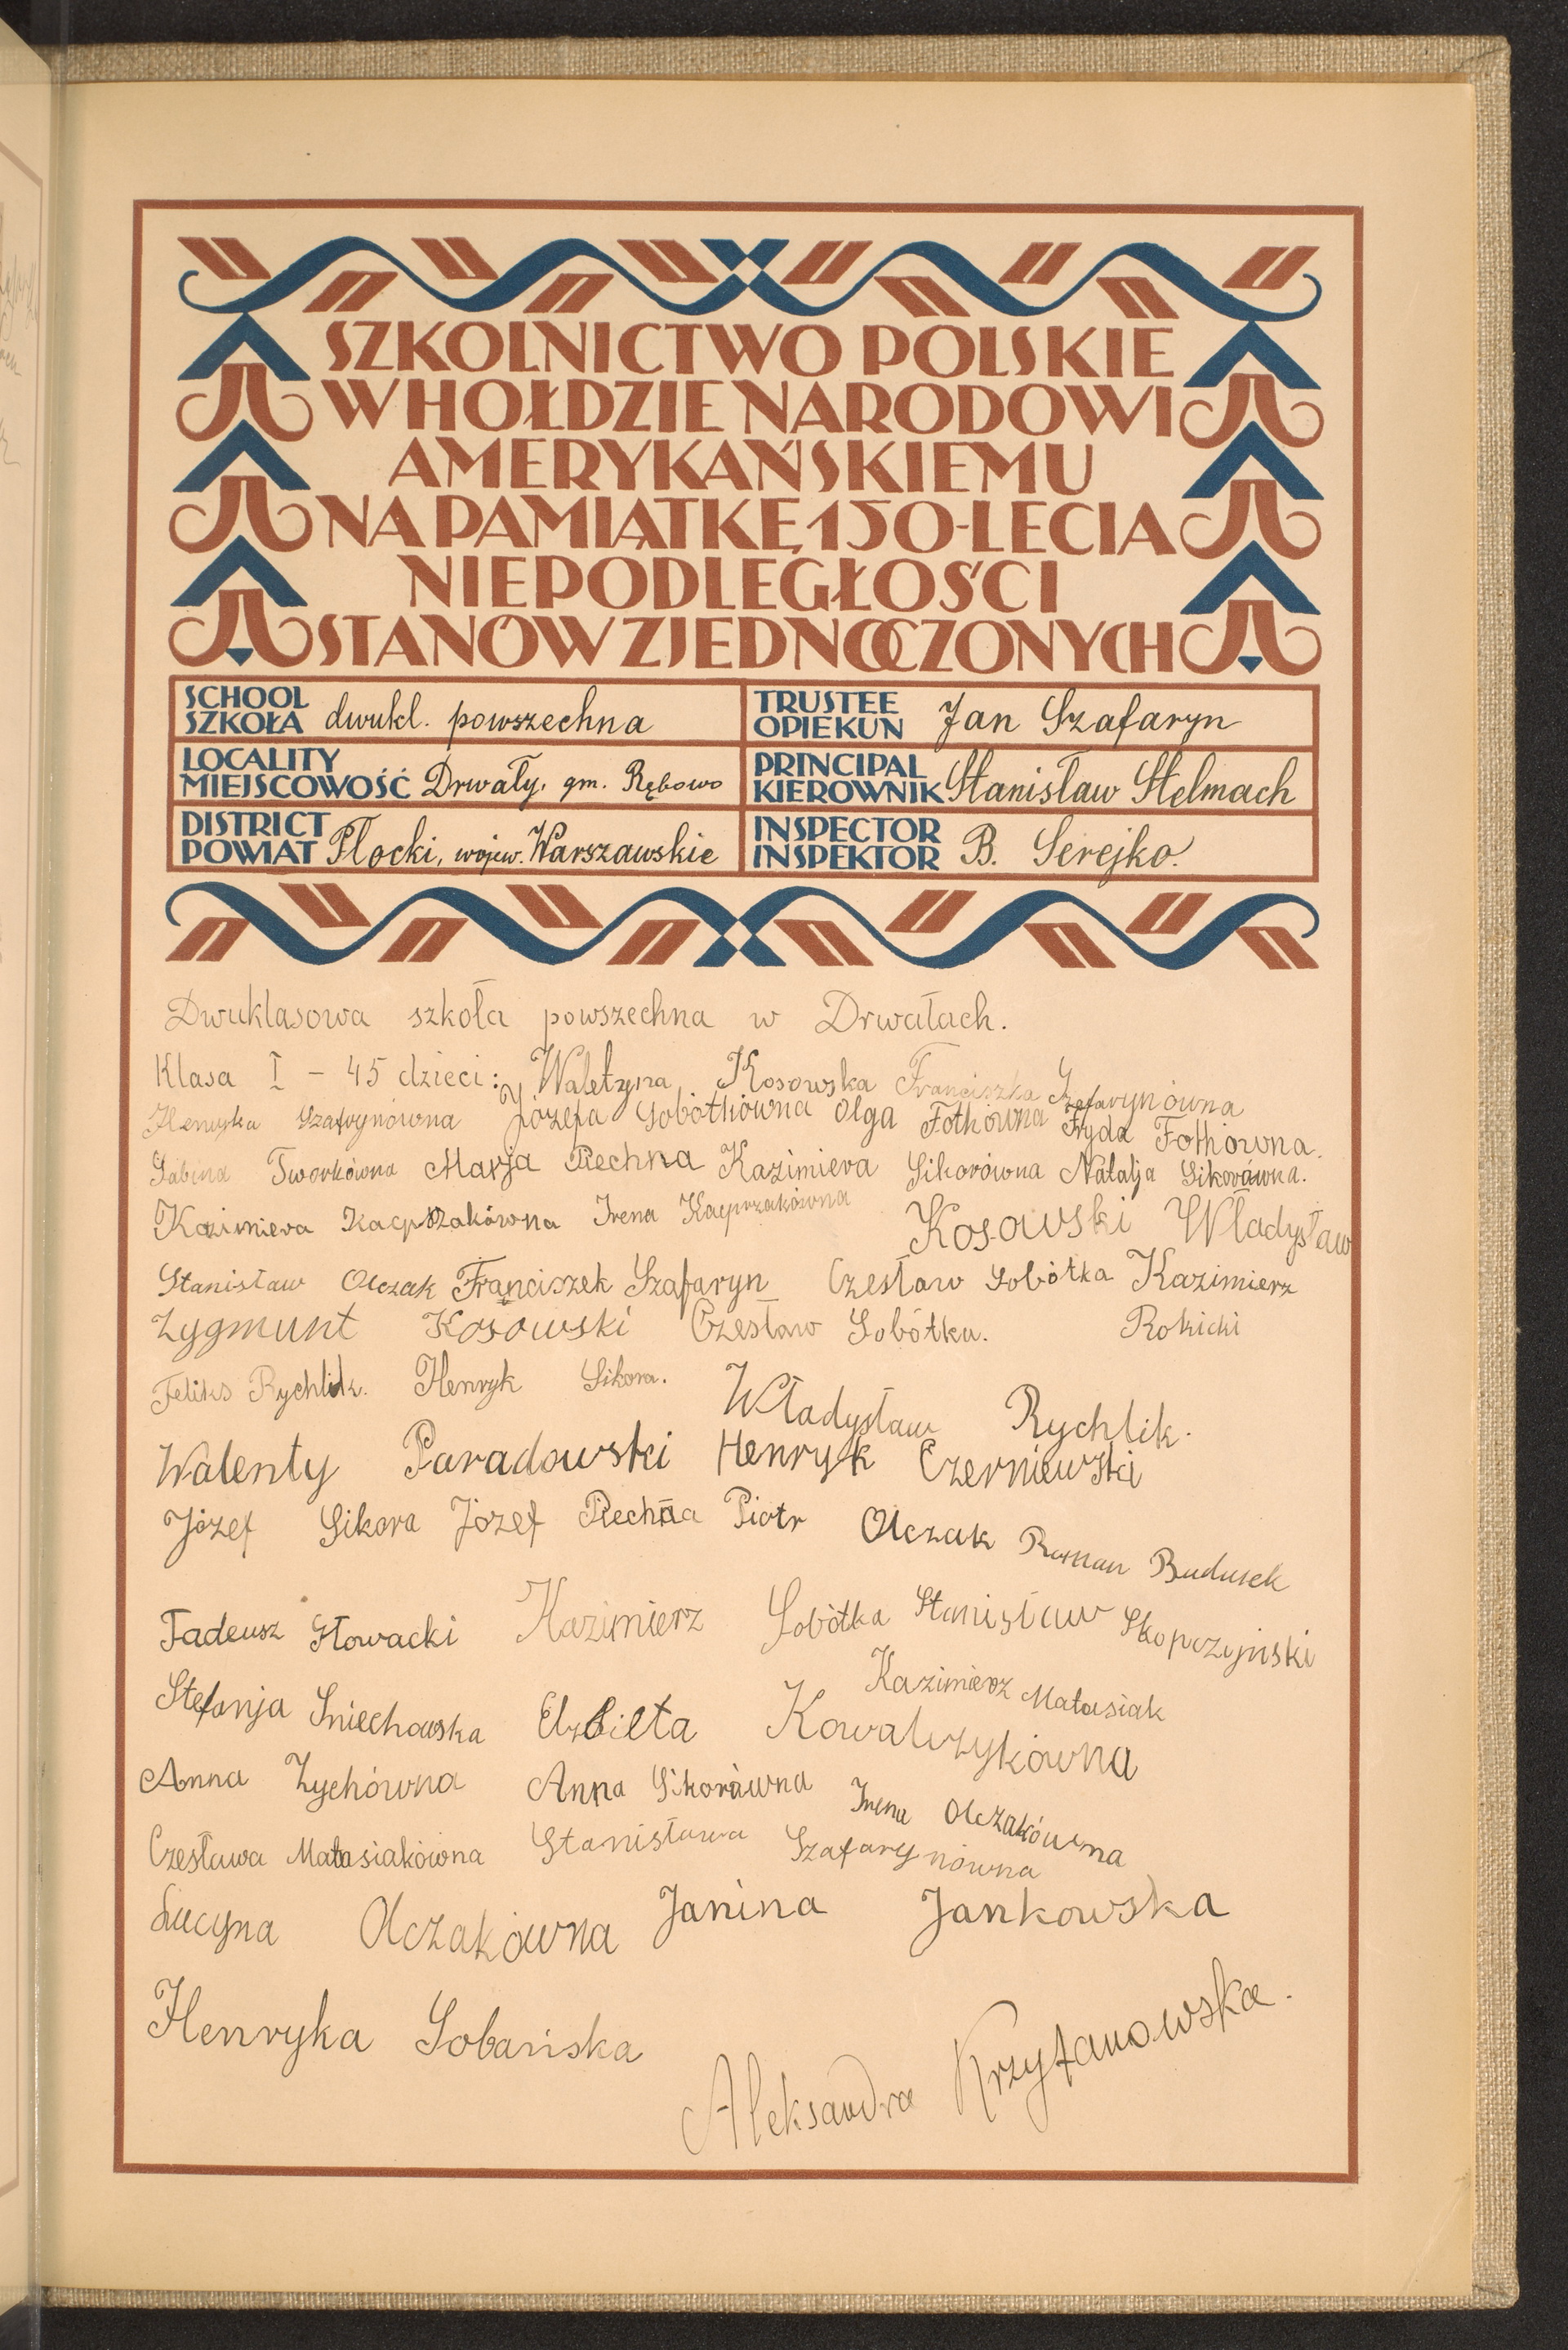 SZKOLNICTWO POLSKIE
W HOŁDZIE NARODOWI
AMERYKAŃSKIEMU
NA PAMIĄTKĘ 150-LECIA
NIEPODLEGŁOŚCI
STANÓW ZJEDNOCZONYCH
SCHOOL
SZKOŁA dwukl. powszechna
TRUSTEE
OPIEKUN Jan Szafaryn
LOCALITY
MIEJSCOWOŚĆ Drwały, gm. Rębowo
PRINCIPAL
KIEROWNIK Stanisław Stelmach
DISTRICT
POWIAT Płocki, wojew. Warszawskie
INSPECTOR
INSPEKTOR B. Serejko.
Dwuklasowa szkoła powszechna w Drwałach.
Klasa I – 45 dzieci: Kosowska Franciszka Szafarynówna
Henryka Szafrynówna Józefa Sobótkówna Olga Fothówna Fryda Fothówna.
Sabina Tworkówna Marja Piechna Kazimiera Sikorówna Natalja Sikorówna.
Kazimiera Kacprzakówna Irena Kacprzakówna Kosowski Władysław
Stanisław Olczak Franciszek Szafaryn Czesław Sobótka Kazimierz
Zygmunt Kosowski Czesław Sobótka. Rokicki
Feliks Rychlik. Henryk Sikora. Władysław Rychlik.
Walenty Paradowski Henryk Czerniewski
Józef Sikora Józef Piechna Piotr Olczak Roman Budusek
Tadeusz Głowacki Kazimierz Sobótka Stanisław Skopczyński
Kazimierz Matasiak
Stefanja Śniechowska Elżbieta Kowalczykówna
Anna Zychówna Anna Sikorówna Irena Olczakówna
Czesława Matasiakówna Stanisława Szafarynówna
Lucyna Olczakówna Janina Jankowska
Henryka Sobańska
Aleksandra Krzyżanowska.